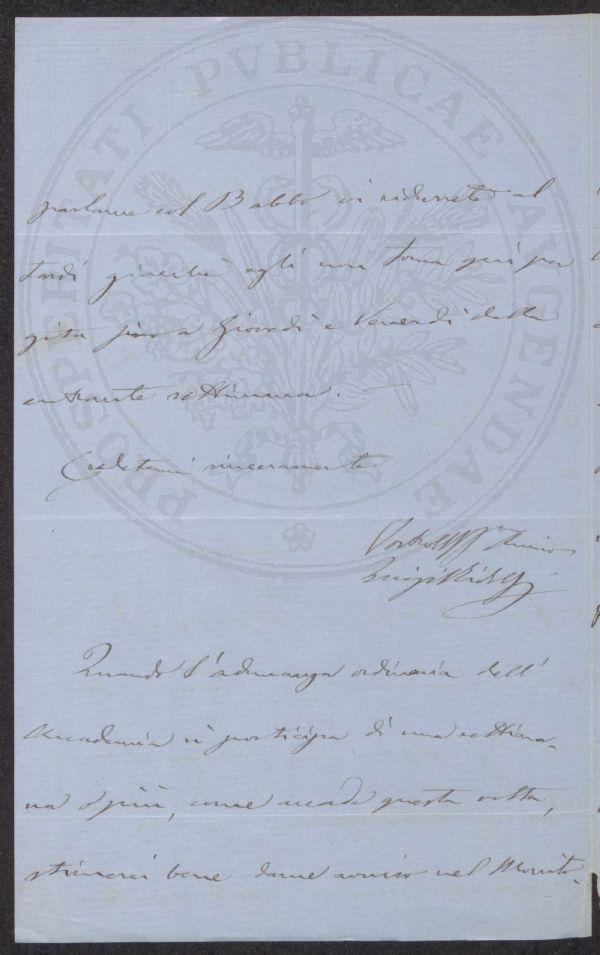 PROSPERITATI PVBLICAE AVGENDAE
parlarne col Babbo, vi ridurrete al
tardi giacchè egli non torna quì per
gita fino a Giovedì e Venerdì della
entrante settimana. —
Credetemi sinceramente
Luigi Ridolfi
Quando l'adunanza ordinaria dell'
Accademia si posticipa di una settima-
na o più, come accade questa volta,
stimerei bene darne avviso nel Monito-